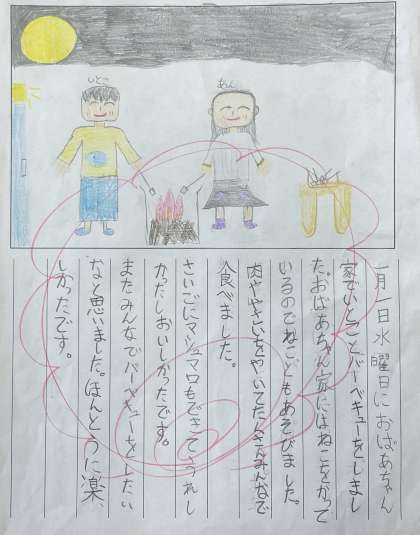 いとこ
あん
一月一日水曜日におばあちゃん
家でいとことバーベキューをしまし
た。おばあちゃん家にはねこをかって
いるのでねこともあそびました。
肉ややさいをやいてたくさんみんなで
食べました。
さいごにマシュマロもできて、うれし
かったしおいしかったです。
またみんなでバーベキューをしたい
なと思いました。ほんとうに楽
しかったです。